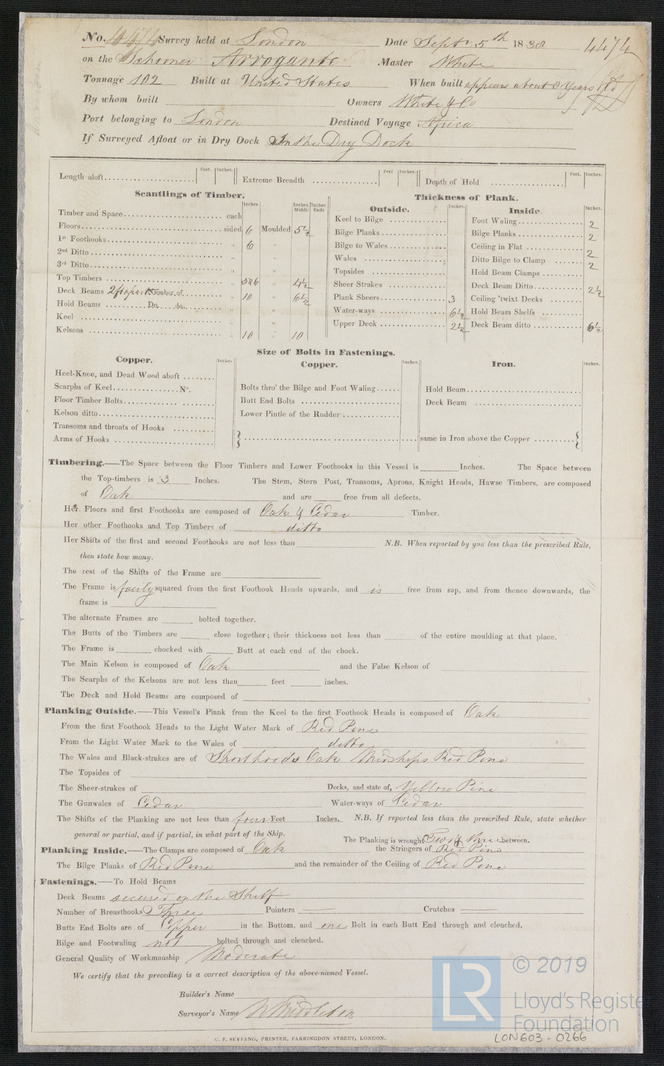 No. 4474 Survey held at London Date Septr. 5th 1838 4474
on the Schooner Arrogante Master White
Tonnage 102 Built at United States When built appears about 8 Years
By whom built Owners White & Co
Port belonging to London Destined Voyage Africa
If Surveyed Afloat or in Dry Dock In the Dry Dock
Length aloft Feet. Inches. Extreme Breadth Feet Inches. Depth of Hold Feet. Inches.
Scantlings of Timber.
Inches. Inches Middle Inches Ends
Timber and Space each
Floors sided 6 Moulded 5½
1st Foothooks 6
2nd Ditto
3rd Ditto
Top Timbers 5&6 4½
Deck Beams 10 6½
Hold Beams Do. do.
Keel
Kelsons 10 10
Thickness of Plank.
Outside. Inches.
Keel to Bilge
Bilge Planks
Bilge to Wales
Wales
Topsides
Sheer Strakes
Plank Sheers 3
Water-ways 6½
Upper Deck 2½
Inside Inches.
Foot Waling 2
Bilge Planks 2
Ceiling in Flat 2
Ditto Bilge to Clamp 2
Hold Beam Clamps
Deck Beam Ditto 2½
Ceiling 'twixt Decks
Hold Beam Shelfs
Deck Beam ditto 6½
Size of Bolts in Fastenings.
Copper. Inches.
Heel-Knee, and Dead Wood abaft
Scarphs of Keel No.
Floor Timber Bolts
Kelson ditto
Transoms and throats of Hooks
Arms of Hooks
Copper. Inches.
Bolts thro' the Bilge and Foot Waling
Butt End Bolts
Lower Pintle of the Rudder
Iron. Inches.
Hold Beam
Deck Beam
same in Iron above the Copper
Timbering.—The Space between the Floor Timbers and Lower Foothooks in this Vessel is Inches. The Space between
the Top-timbers is 3 Inches. The Stem, Stern Post, Transoms, Aprons, Knight Heads, Hawse Timbers, are composed
of Oak and are free from all defects.
Her Floors and first Foothooks are composed of Oak & Cedar Timber.
Her other Foothooks and Top Timbers of ditto
Her Shifts of the first and second Foothooks are not less than N.B. When reported by you less than the prescribed Rule,
then state how many.
The rest of the Shifts of the Frame are
The Frame is fairly squared from the first Foothook Heads upwards, and is free from sap, and from thence downwards, the
frame is
The alternate Frames are bolted together.
The Butts of the Timbers are close together; their thickness not less than of the entire moulding at that place.
The Frame is chocked with Butt at each end of the chock.
The Main Kelson is composed of Oak and the False Kelson of
The Scarphs of the Kelsons are not less than feet inches.
The Deck and Hold Beams are composed of
Planking Outside.—This Vessel's Plank from the Keel to the first Foothook Heads is composed of Oak
From the first Foothook Heads to the Light Water Mark of Red Pine
From the Light Water Mark to the Wales of ditto
The Wales and Black-strakes are of Shorthoods Oak Midships Red Pine
The Topsides of
The Sheer-strakes of Decks, and state of, Yellow Pine
The Gunwales of Cedar Water-ways of Cedar
The Shifts of the Planking are not less than four Feet Inches. N.B. If reported less than the prescribed Rule, state whether
general or partial, and if partial, in what part of the Ship. The Planking is wrought Two & three between.
Planking Inside.—The Clamps are composed of Oak the Stringers of Red Pine
The Bilge Planks of Red Pine and the remainder of the Ceiling of Red Pine
Fastenings.—To Hold Beams
Deck Beams secured on the Shelf
Number of Breasthooks Three Pointers — Crutches —
Butts End Bolts are of Copper in the Bottom, and one Bolt in each Butt End through and clenched.
Bilge and Footwaling not bolted through and clenched.
General Quality of Workmanship Moderate
We certify that the preceding is a correct description of the above-named Vessel.
Builder's Name
Surveyor's Name W Middleton
C. F. SEYFANG, PRINTER, FARRINGDON STREET, LONDON.
LR © 2019
Lloyd's Register
Foundation
LON603-0266